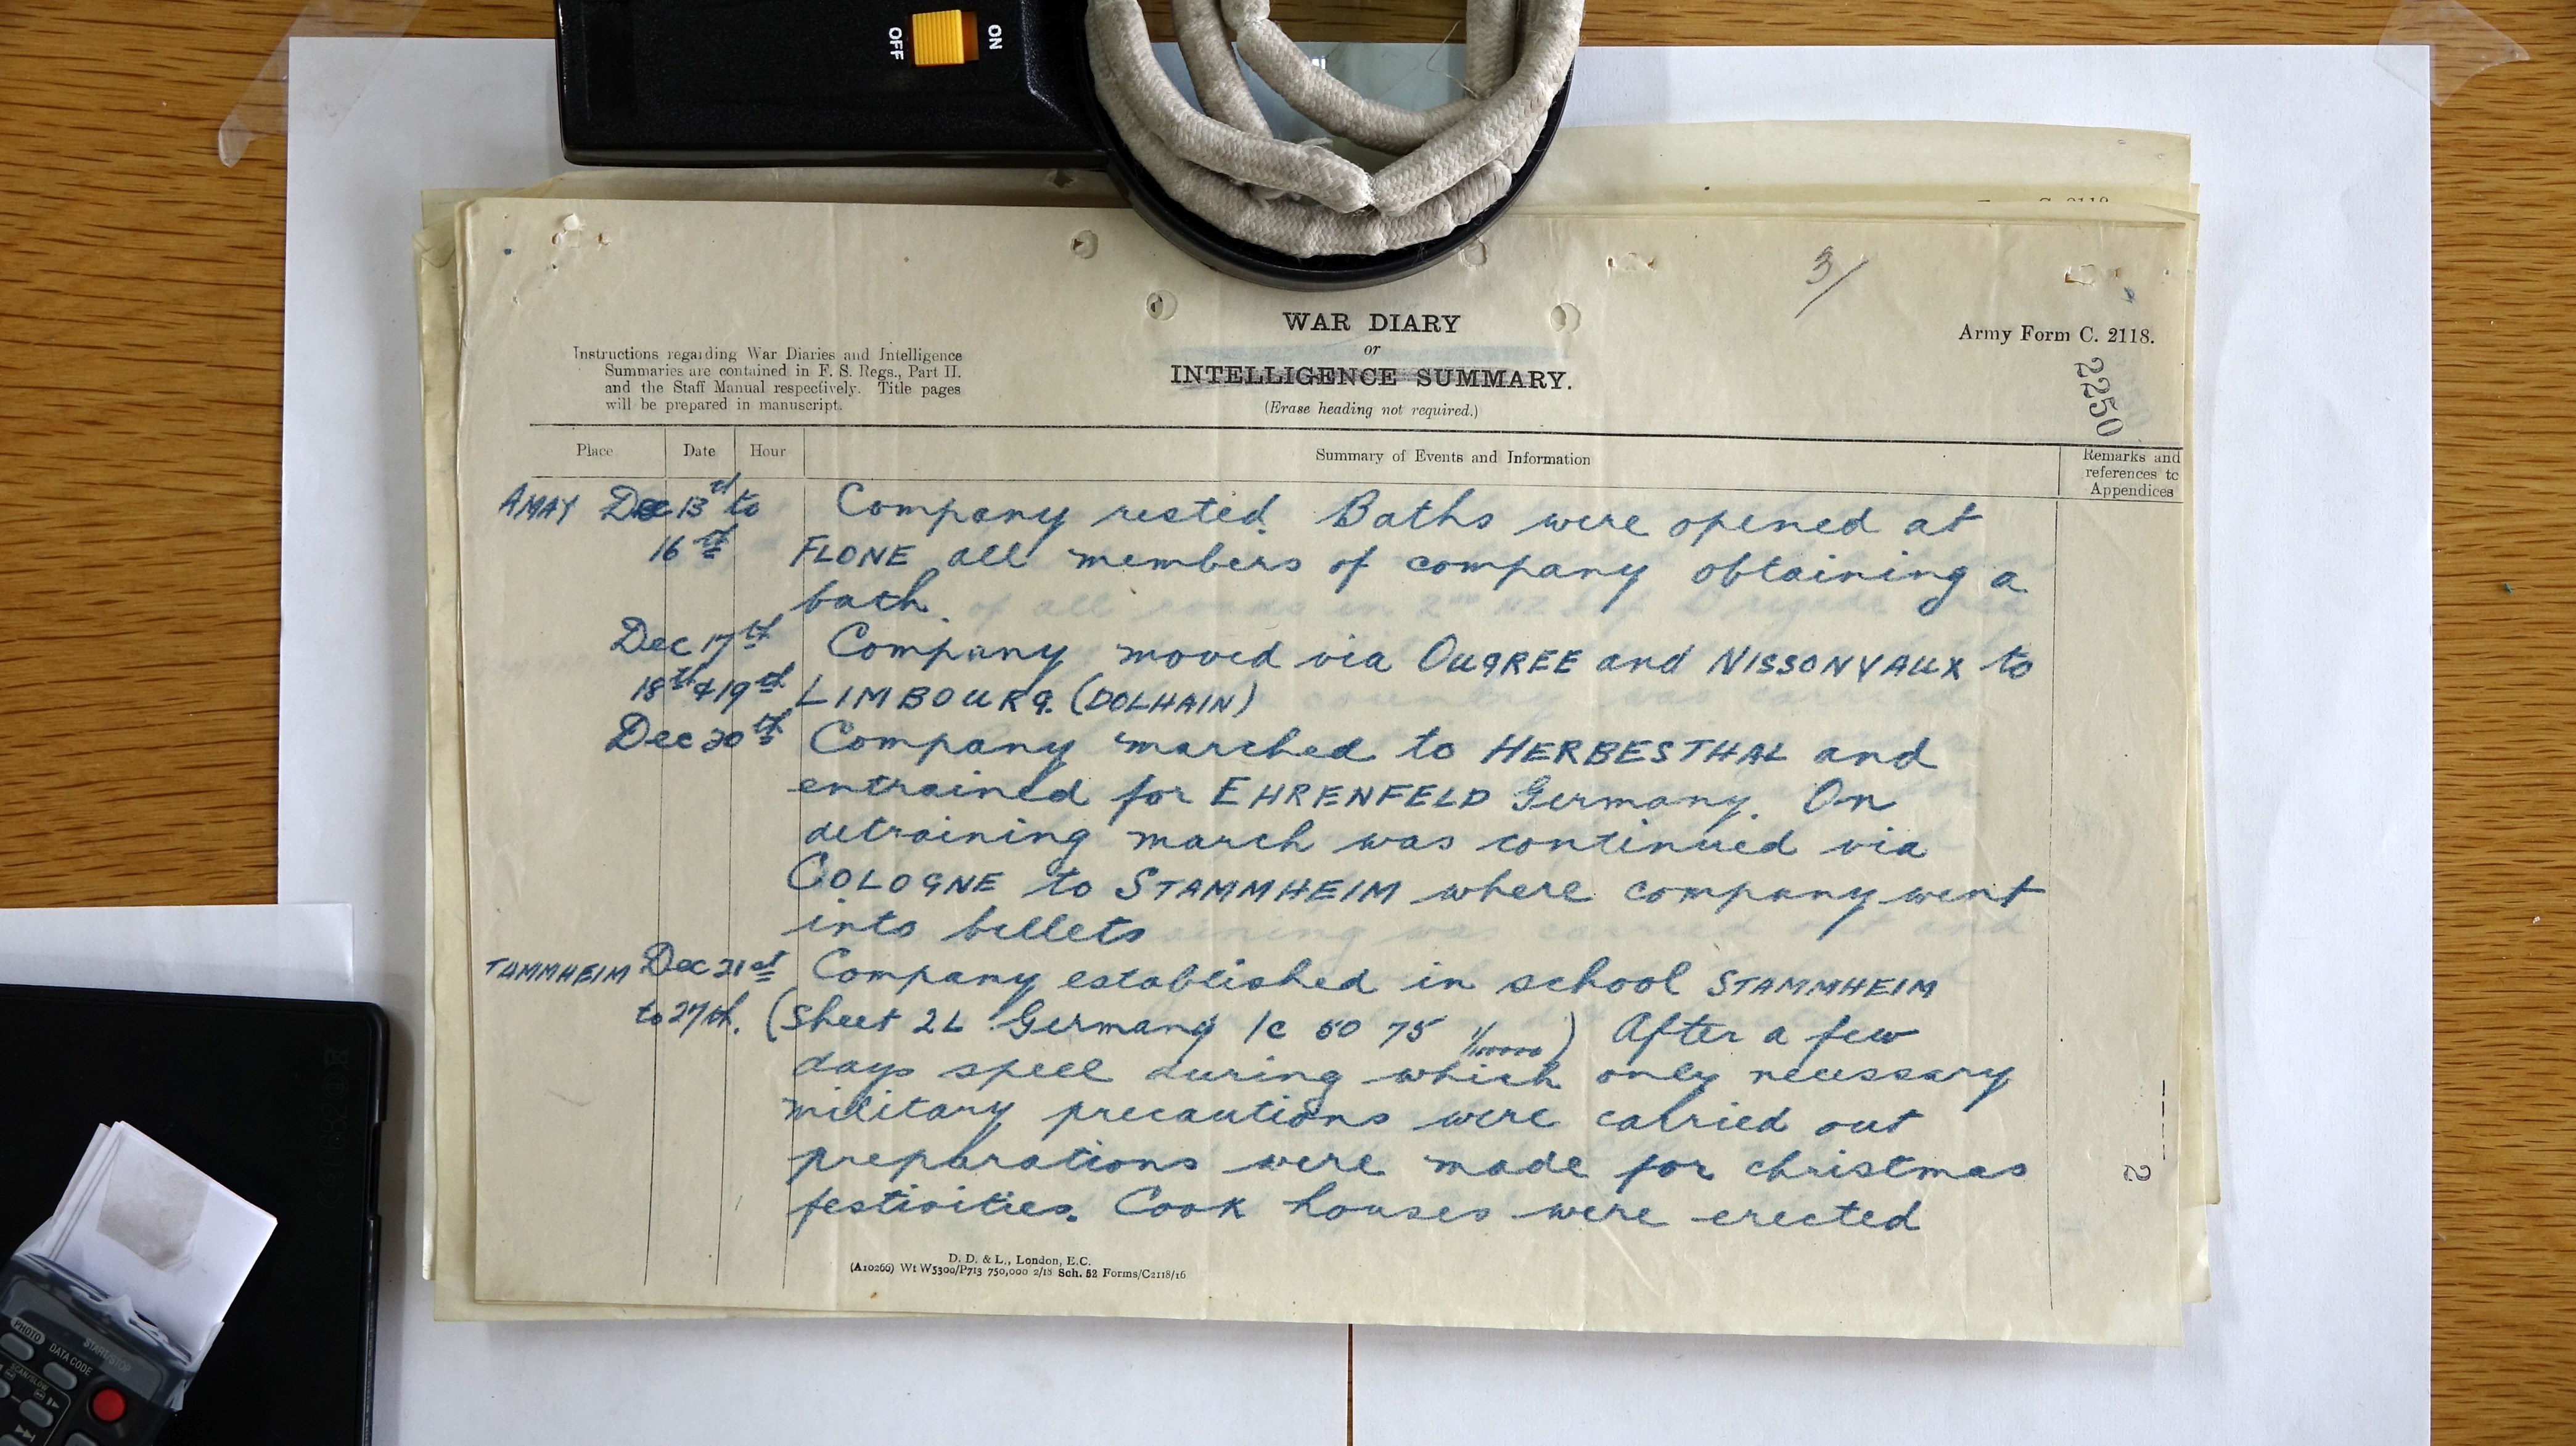 OFF ON
3/
WAR DIARY
or
INTELLIGENCE SUMMARY.
(Erase heading not required.)
Instructions regarding War Diaries and Intelligence
Summaries are contained in F. S. Regs., Part II.
and the Staff Manual respectively. Title pages
will be prepared in manuscript.
Army Form C. 2118.
2250
Place Date Hour Summary of Events and Information Remarks and
references to
Appendices
AMAY Dec 13th to Company rested. Baths were opened at
16th FLONE all members of company obtaining a
bath.
Dec 17th Company moved via OUGREE and NISSONVAUX to
18th & 19th LIMBOURG. (DOLHAIN)
Dec 20th Company marched to HERBESTHAL and
entrained for EHRENFELD Germany. On
detraining march was continued via
COLOGNE to STAMMHEIM where company went
into billets
TAMMHEIM Dec 21st Company established in school STAMMHEIM
to 27th. (Sheet 2L Germany 1c 50 75 1/100000) After a few
days spell during which only necessary
military precautions were carried out
preparations were made for christmas
festivities. Cook houses were erected
2
D. D. & L., London, E.C.
(A10266) Wt W5300/P713 750,000 2/18 Sch. 52 Forms/C2118/16
PHOTO
DATA CODE
START/STOP
SCAN/SLOW